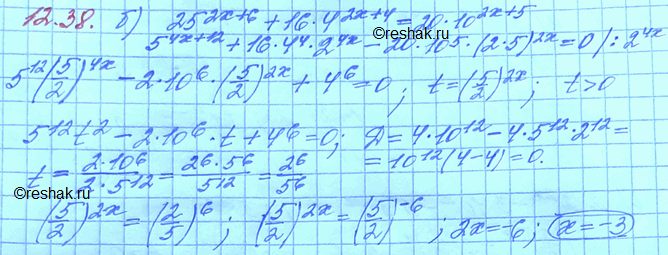 12.38. б) 25^(2x+6) + 16·4^(2x+4) = 20·10^(2x+5)
5^(4x+12) + 16·4^4·2^(4x) − 20·10^5·(2·5)^(2x) = 0 /: 2^(4x)
5^12(5/2)^(4x) − 2·10^6·(5/2)^(2x) + 4^6 = 0; t = (5/2)^(2x); t>0
5^12 t^2 − 2·10^6·t + 4^6 = 0; D = 4·10^12 − 4·5^12·2^12 =
= 10^12(4−4) = 0.
t = (2·10^6)/(2·5^12) = (2^6·5^6)/5^12 = 2^6/5^6
(5/2)^(2x) = (2/5)^6; (5/2)^(2x) = (5/2)^(−6); 2x = −6; x = −3
©reshak.ru
©reshak.ru